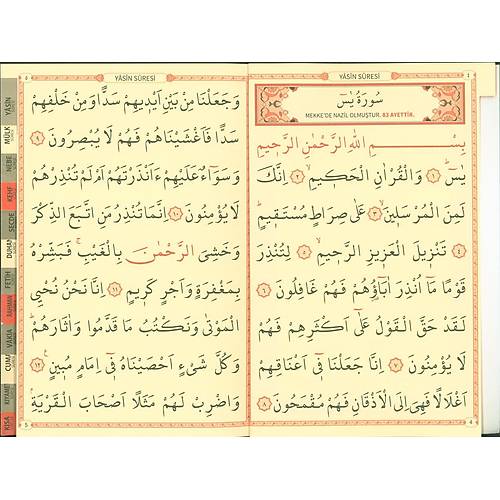 YÂSÎN SÛRESİ
سُورَةُ يٰسٓ
MEKKE'DE NAZİL OLMUŞTUR. 83 AYETTİR.
بِسْمِ اللّٰهِ الرَّحْمٰنِ الرَّحِيمِ
يٰسٓ ﴿١﴾ وَالْقُرْاٰنِ الْحَكِيمِ ﴿٢﴾ اِنَّكَ
لَمِنَ الْمُرْسَلِينَ ﴿٣﴾ عَلٰى صِرَاطٍ مُسْتَقِيمٍ
﴿٤﴾ تَنْزِيلَ الْعَزِيزِ الرَّحِيمِ ﴿٥﴾ لِتُنْذِرَ
قَوْمًا مَٓا اُنْذِرَ اٰبَٓاؤُ۬هُمْ فَهُمْ غَافِلُونَ ﴿٦﴾
لَقَدْ حَقَّ الْقَوْلُ عَلٰٓى اَكْثَرِهِمْ فَهُمْ
لَا يُؤْمِنُونَ ﴿٧﴾ اِنَّا جَعَلْنَا فِٓي اَعْنَاقِهِمْ
اَغْلَالًا فَهِيَ اِلَى الْاَذْقَانِ فَهُمْ مُقْمَحُونَ ﴿٨﴾
4
YÂSÎN SÛRESİ
وَجَعَلْنَا مِنْ بَيْنِ اَيْدِيهِمْ سَدًّا وَمِنْ خَلْفِهِمْ
سَدًّا فَاَغْشَيْنَاهُمْ فَهُمْ لَا يُبْصِرُونَ ﴿٩﴾
وَسَوَٓاءٌ عَلَيْهِمْ ءَاَنْذَرْتَهُمْ اَمْ لَمْ تُنْذِرْهُمْ
لَا يُؤْمِنُونَ ﴿١٠﴾ اِنَّمَا تُنْذِرُ مَنِ اتَّبَعَ الذِّكْرَ
وَخَشِيَ الرَّحْمٰنَ بِالْغَيْبِۚ فَبَشِّرْهُ
بِمَغْفِرَةٍ وَاَجْرٍ كَرِيمٍ ﴿١١﴾ اِنَّا نَحْنُ نُحْيِي
الْمَوْتٰى وَنَكْتُبُ مَا قَدَّمُوا وَاٰثَارَهُمْۜ
وَكُلَّ شَيْءٍ اَحْصَيْنَاهُ فِٓي اِمَامٍ مُبِينٍ ﴿١٢﴾
وَاضْرِبْ لَهُمْ مَثَلًا اَصْحَابَ الْقَرْيَةِۢ
5
YÂSÎN
MÜLK
NEBE
KEHF
SECDE
DUHAN
FETİH
RAHMAN
VÂKIA
CUMA
KIYAME
KISA